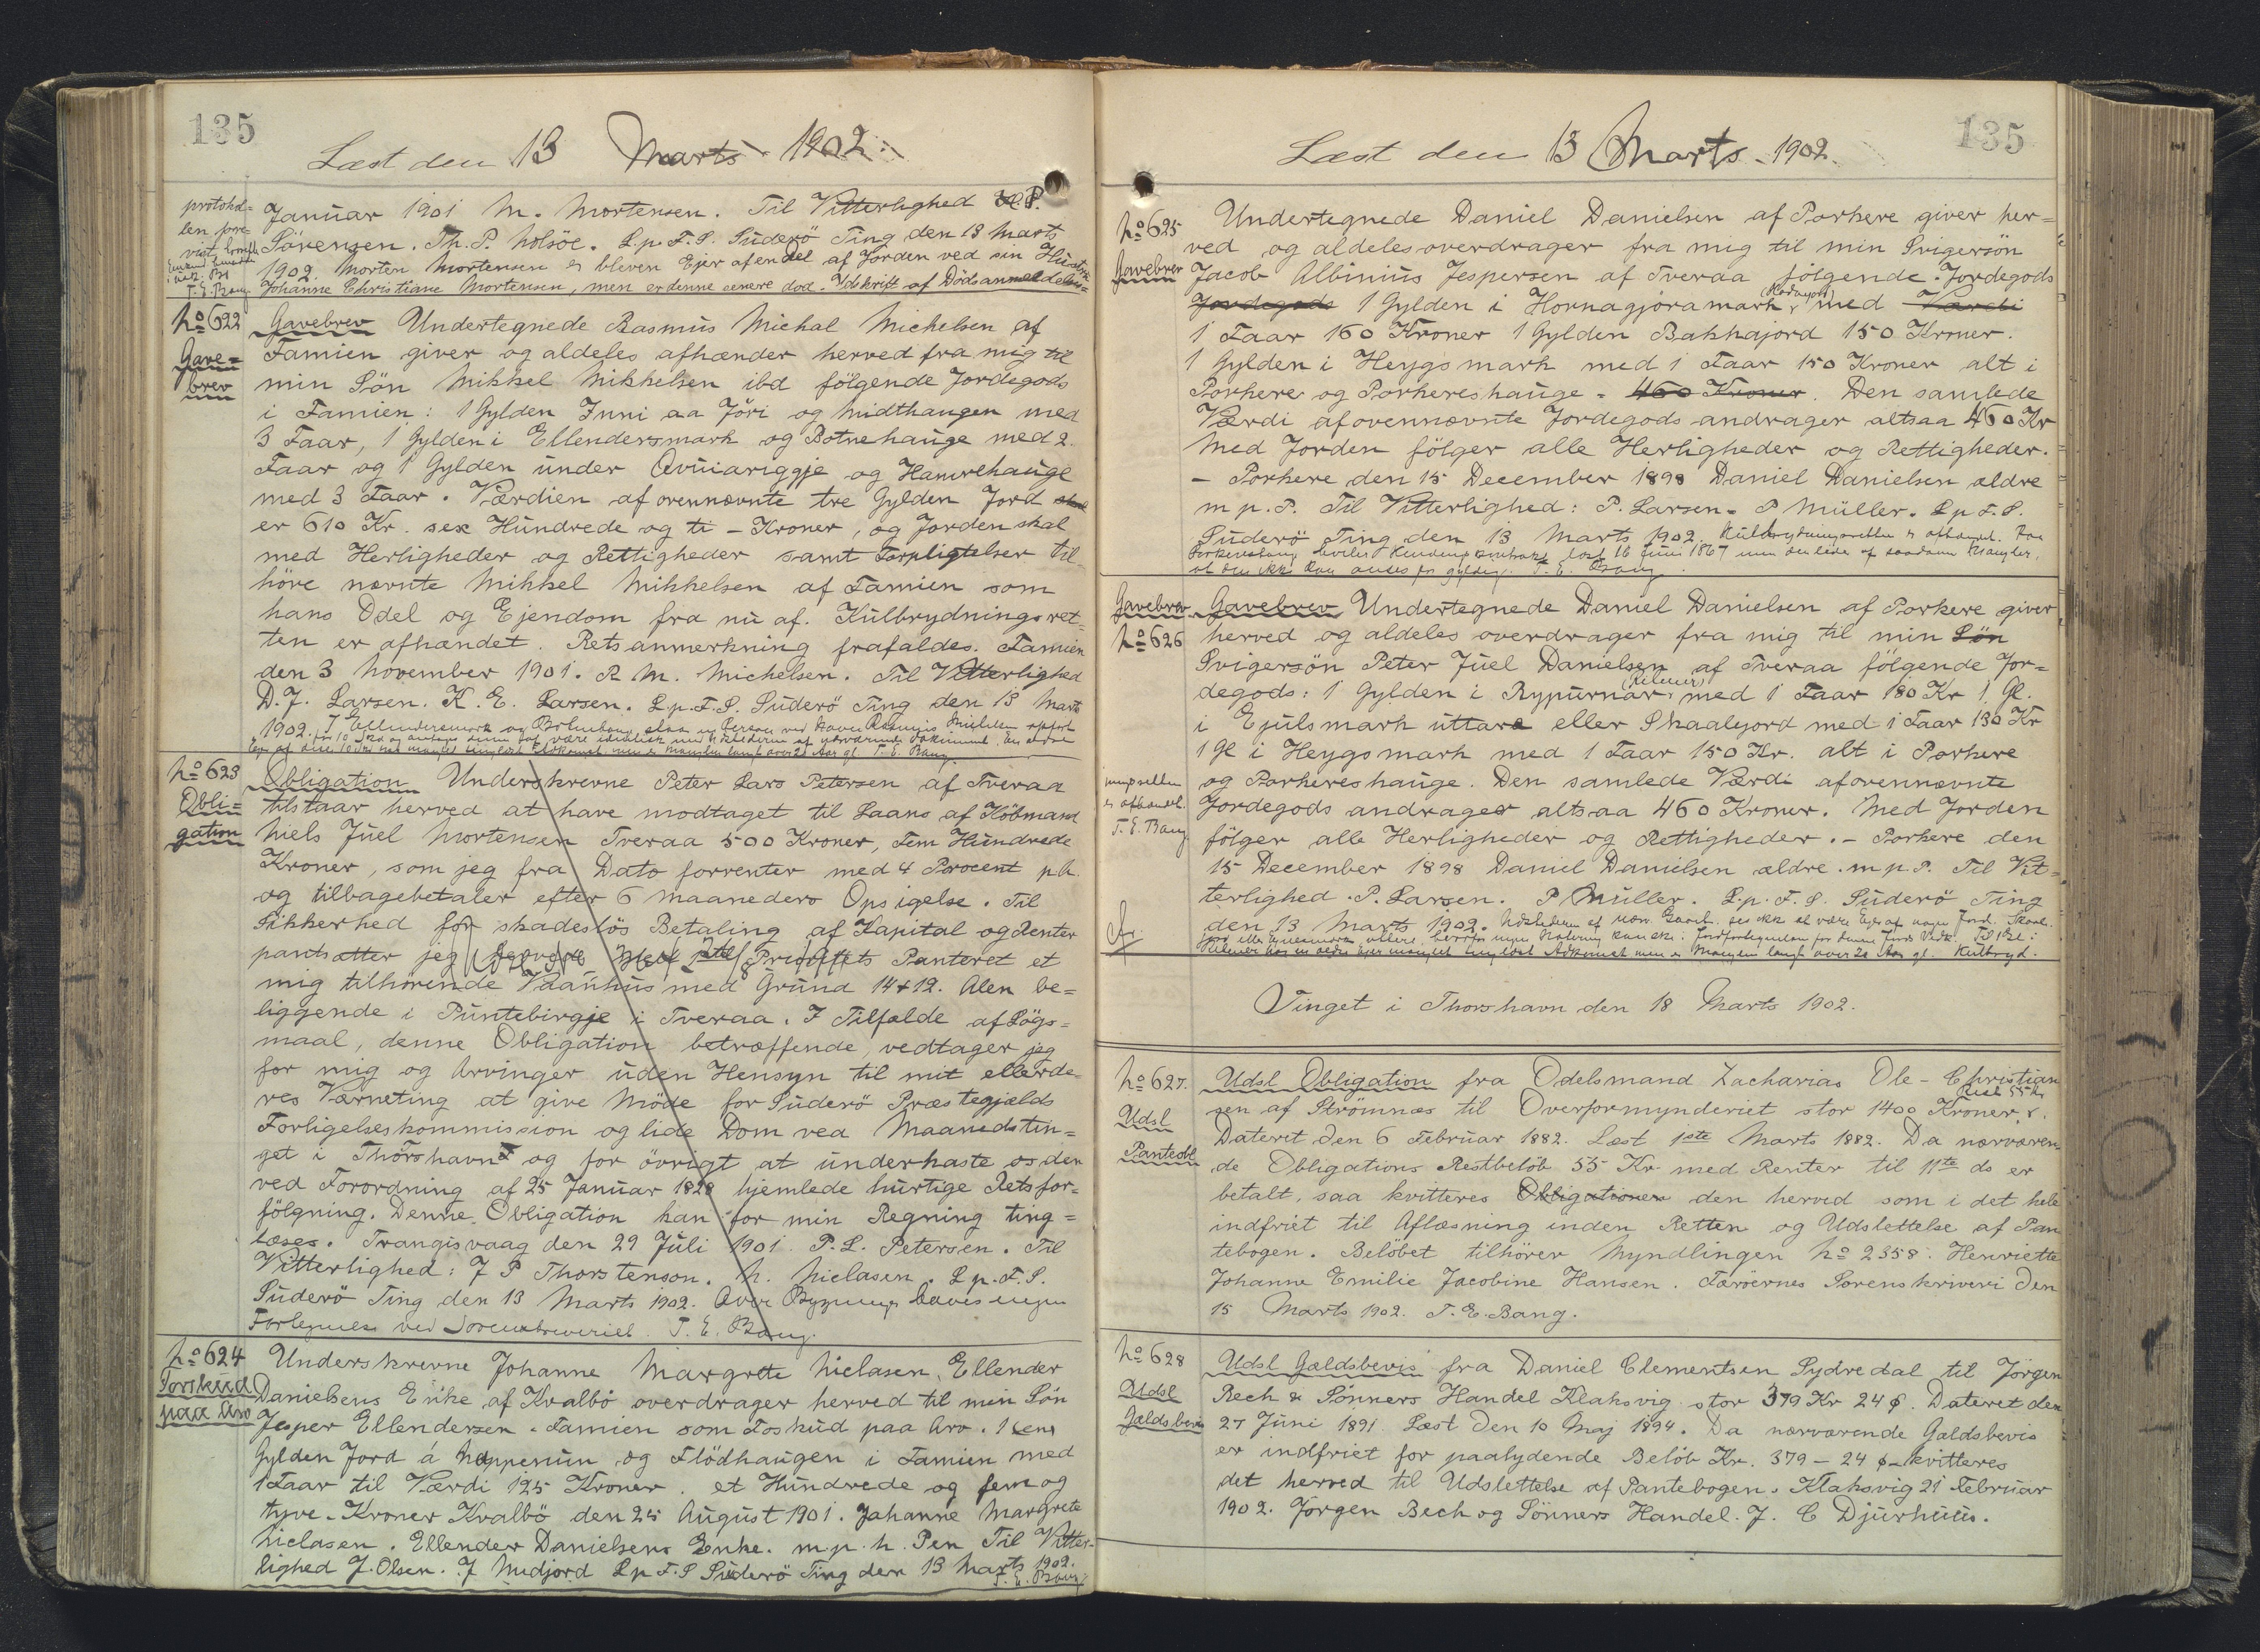 135
Læst den 13 Marts 1902.
protokol=
len fore
vist
T. E. Bang
Januar 1901 M. Mortensen. Til Vitterlighed P.
Sörensen. Th. P. Holsöe. L.p.F.S. Suderö Ting den 13 Marts
1902. Morten Mortensen er bleven Ejer af en Del af Jorden ved sin Hustru
Johanne Christiane Mortensen, men er denne senere död. Udskrift af Dödsanmeldelses=
No 622
Gave=
brev
Gavebrev Undertegnede Rasmus Michal Michelsen af
Famien giver og aldeles afhænder herved fra mig til
min Sön Mikkel Mikkelsen ibd fölgende Jordegods
i Famien: 1 Gylden Inni aa Jöri og Midthaugen med
3 Faar, 1 Gylden i Ellendersmark og Botnehauge med 2
Faar og 1 Gylden under Qvuiariggje og Hamrehauge
med 3 Faar. Værdien af ovennævnte tre Gylden Jord skal
er 610 Kr. sex Hundrede og ti - Kroner, og Jorden skal
med Herligheder og Rettigheder samt Forpligtelser til
höre nævnte Mikkel Mikkelsen af Famien som
hans Odel og Ejendom fra nu af. Kulbrydningsret=
ten er afhændet. Retsanmerkning frafaldes. Famien
den 3 November 1901. R M. Michelsen. Til Vitterlighed
D. J. Larsen. K. E. Larsen. L.p.F.S. Suderö Ting den 13 Marts
1902. I Ellendersmark og Botnehauge
T. E. Bang.
No 623
Obli=
gation
Obligation Underskrevne Peter Lars Petersen af Tveraa
tilstaar herved at have modtaget til Laans af Köbmand
Niels Juel Mortensen Tveraa 500 Kroner, Fem Hundrede
Kroner, som jeg fra Dato forrenter med 4 Procent p.A.
og tilbagebetaler efter 6 Maaneders Opsigelse. Til
Sikkerhed for skadeslös Betaling af Kapital og Renter
pantsætter jeg herved med 1ste Prioritets Panteret et
mig tilhörende Vaanhus med Grund 14 x 12. Alen be=
liggende i Puntebirgje i Tveraa. I Tilfælde af Sögs=
maal, denne Obligation betræffende, vedtager jeg
for mig og Arvinger uden Hensyn til mit eller de=
res Værneting at give Möde for Suderö Præstegjælds
Forligelseskommission og lide Dom ved Maanedstin=
get i Thorshavn og for övrigt at underkaste os den
ved Forordning af 25 Januar 1828 hjemlede hurtige Retsfor=
fölgning. Denne Obligation kan for min Regning ting=
læses. Trangisvaag den 29 Juli 1901. P. L. Petersen. Til
Vitterlighed: J P Thorstenson. N. Niclasen. L p. F. S.
Suderö Ting den 13 Marts 1902. Over Bygninger haves ingen
Fortegnelse ved Sorenskriveriet. T. E. Bang.
No 624
Forskud
paa Arv
Underskrevne Johanne Margrette Niclasen, Ellender
Danielsens Enke af Kvalbö overdrager herved til min Sön
Jesper Ellendersen - Famien som Foskud paa Arv. 1 (en)
Gylden Jord á Nøppenum og Flödhaugen i Famien med
1 Faar til Værdi 125 Kroner. et Hundrede og fem og
tyve - Kroner Kvalbö den 25 August 1901. Johanne Margrete
Niclasen. Ellender Danielsens Enke. m.p.h. Pen Til Vitter-
lighed J. Olsen. J Midjord L p F. S Suderö Ting den 13 Marts 1902.
T. E. Bang
135
Læst den 13 Marts 1902.
No 625
Gavebrev
Undertegnede Daniel Danielsen af Porkere giver her=
ved og aldeles overdrager fra mig til min Svigersön
Jacob Albinius Jespersen af Tveraa fölgende Jordegods
Jordegods 1 Gylden i Hornagjóramark med Værdi
1 Faar 160 Kroner 1 Gylden Bakkajord 150 Kroner.
1 Gylden i Heygsmark med 1 Faar 150 Kroner alt i
Porkere og Porkereshauge = 460 Kroner. Den samlede
Værdi af ovennævnte Jordegods andrager altsaa 460 Kr
Med Jorden fölger alle Herligheder og Rettigheder.
- Porkere den 15 December 1898 Daniel Danielsen ældre
m p. P. Til Vitterlighed: P. Larsen. P Müller. L p F. S.
Suderö Ting den 13 Marts 1902. Kulbrydningsretten er afhændet. Paa
læst 16 Juni 1867 men den lider af saadanne Mangler,
at den ikke kan anses for gyldig. T. E. Bang.
Gavebrev
No 626
ningsretten
er afhændet.
T. E. Bang
Gavebrev Undertegnede Daniel Danielsen af Porkere giver
herved og aldeles overdrager fra mig til min Sön
Svigersön Peter Juel Danielsen af Tveraa fölgende Jor=
degods: 1 Gylden i Rypurnar med 1 Faar 180 Kr 1 Gl.
i Ejulsmark uttara eller Skaalejord med 1 Faar 130 Kr
1 Gl i Heygsmark med 1 Faar 150 Kr. alt i Porkere
og Porkereshauge. Den samlede Værdi af ovennævnte
Jordegods andrager altsaa 460 Kroner. Med Jorden
fölger alle Herligheder og Rettigheder. - Porkere den
15 December 1898 Daniel Danielsen ældre. m.p.P. Til Vit=
terlighed. P. Larsen. P Müller. L.p.F.S. Suderö Ting
den 13 Marts 1902. Udstederen af nærv. Gaveb. ses ikke at være Ejer af nogen Jord
Mangelen langt over 20 Aar gl. Kulbryd-
Tinget i Thorshavn den 18 Marts 1902.
No 627.
Udsl
Panteobl
Udsl Obligation fra Odelsmand Zacharias Ole - Christian
sen af Strömnæs til Overformynderiet stor 1400 Kroner.
Dateret den 6 Februar 1882. Læst 1ste Marts 1882. Da nærværen
de Obligations Restbelöb 55 Kr med Renter til 11te ds er
betalt, saa kvitteres Obligationen den herved som i det hele
indfriet til Aflæsning inden Retten og Udslettelse af Pan
tebogen. Belöbet tilhörer Myndlingen No 2358. Henriette
Johanne Emilie Jacobine Hansen. Færöernes Sorenskriveri den
15 Marts 1902. T. E. Bang.
No 628
Udsl
Gældsbevis
Udsl Gældsbevis fra Daniel Clementsen Sydredal til Jörgen
Bech & Sönners Handel Klaksvig stor 379 Kr 24 ø. Dateret den
27 Juni 1891. Læst den 10 Maj 1894. Da nærværende Gældsbevis
er indfriet for paalydende Belöb Kr. 379 - 24 ø - kvitteres
det herved til Udslettelse af Pantebogen. Klaksvig 21 Februar
1902. Jörgen Bech og Sönners Handel. J. C Djurhuus.